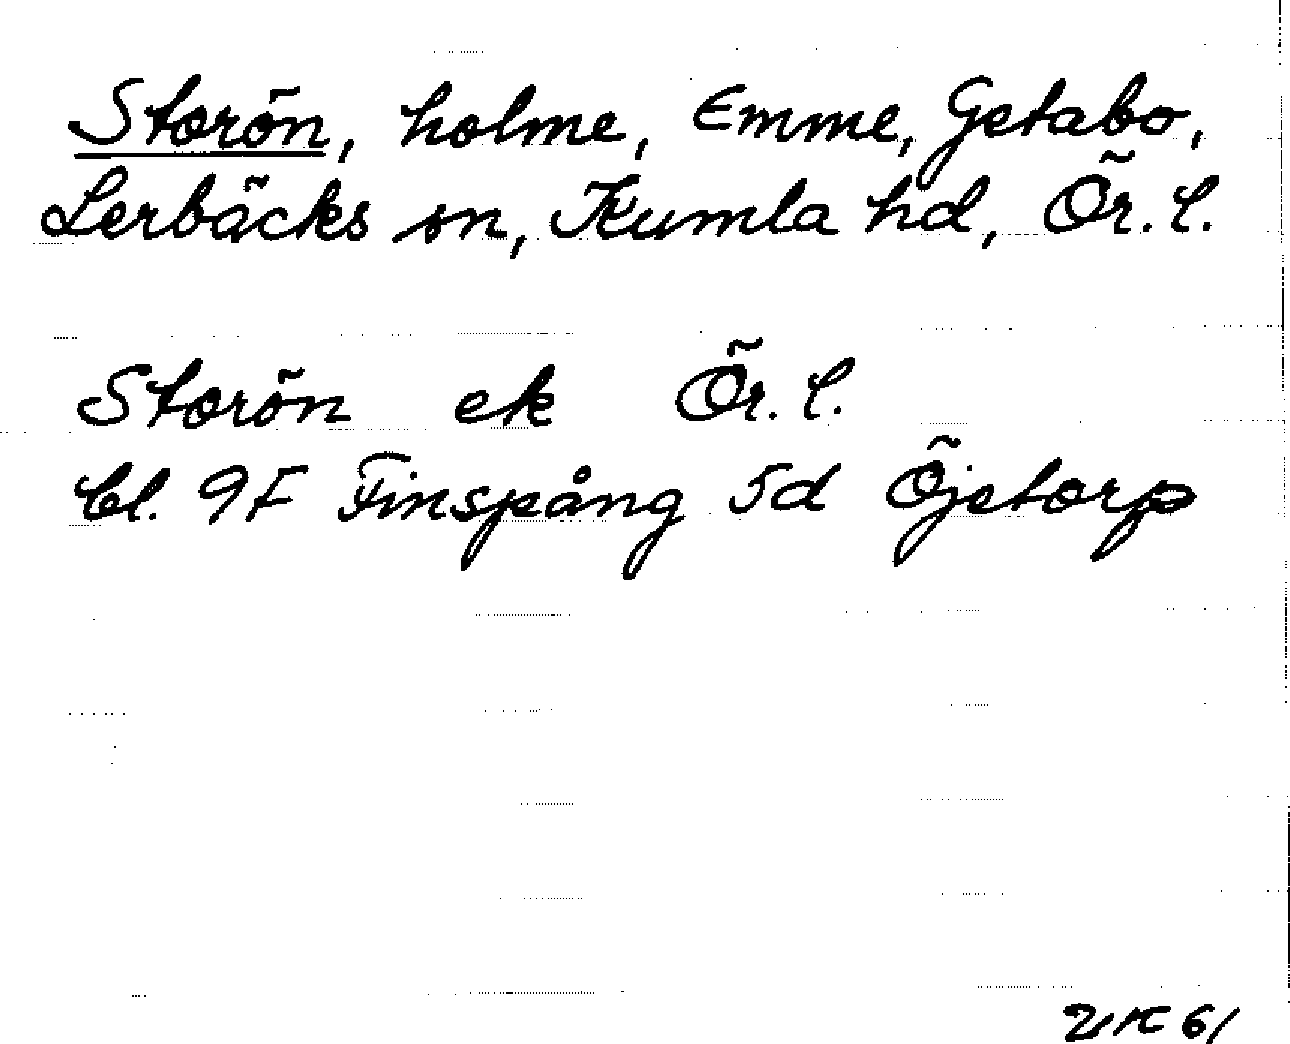 Storön, holme, Emme, Getabo,
Lerbäcks sn, Kumla hd, Ör. l.
Storön ek Ör. l.
bl. 9F Finspång 5d Öjetorp